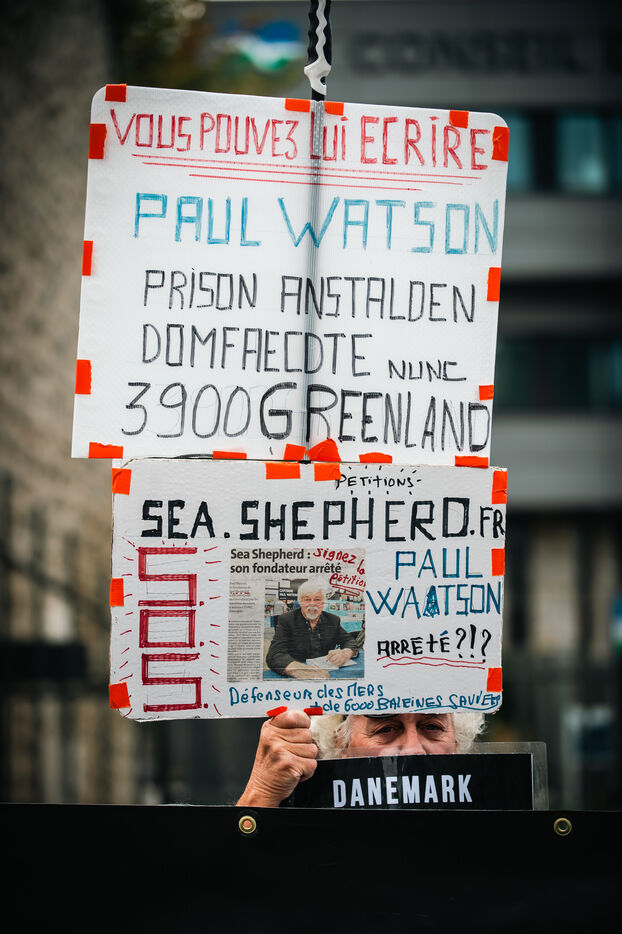 CONSEIL
VOUS POUVEZ LUI ECRIRE
PAUL WATSON
PRISON ANSTALDEN
DOMFAECDTE NUNC
3900 GREENLAND
PETITIONS
SEA.SHEPHERD.FR
S.O.S.
Sea Shepherd :
son fondateur arrêté
signez la
pétition
PAUL
WAATSON
ARRÊTÉ?!?
Défenseur des MERS
+ de 6000 BALEINES SAUVÉES
DANEMARK